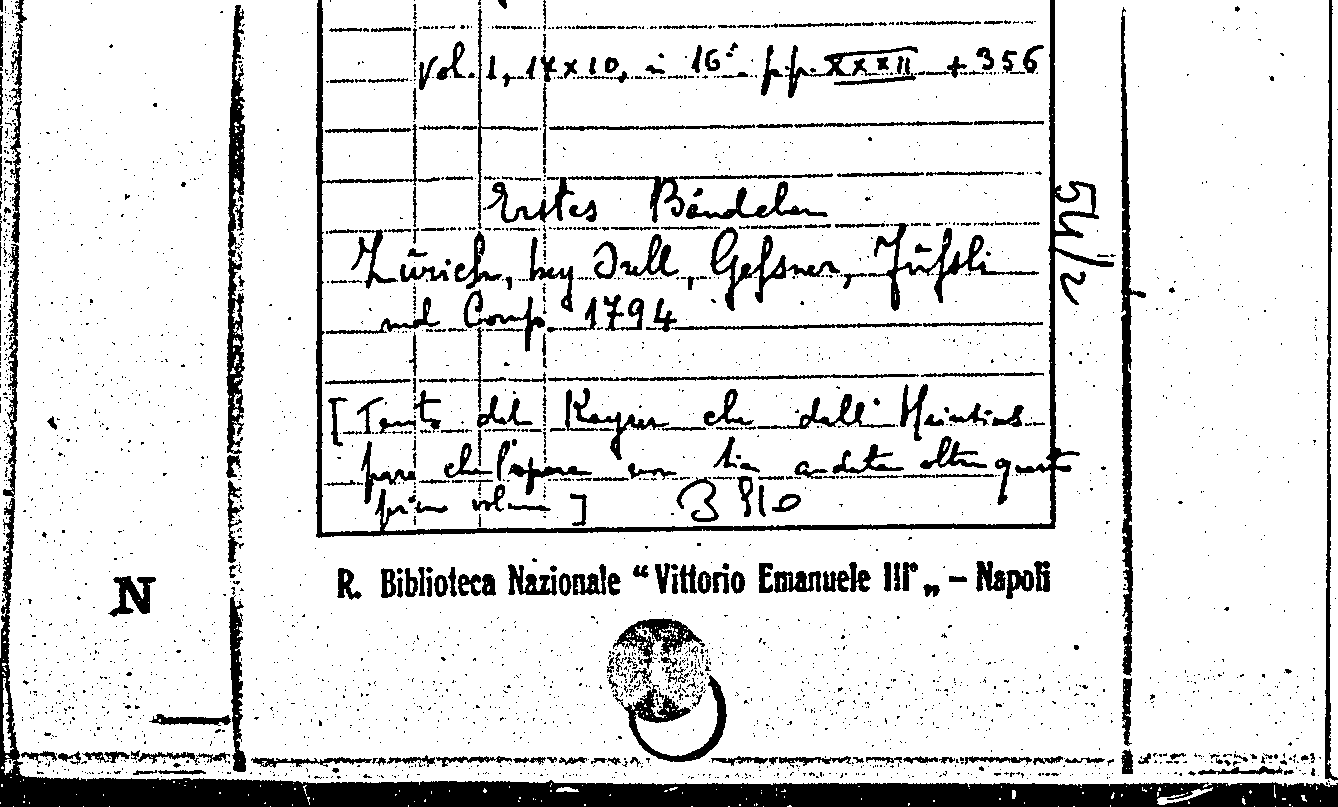 Vol. 1, 17x10, in 16°. pp. XXXII + 356
Erstes Bändchen
Zürich, bey Orell, Gessner, Füssli
und Comp. 1794
[Tanto dal Kayser che dall' Heinsius
pare che l'opera non sia andata oltre questo
primo volume]
R. Biblioteca Nazionale “Vittorio Emanuele III° „ – Napoli
N